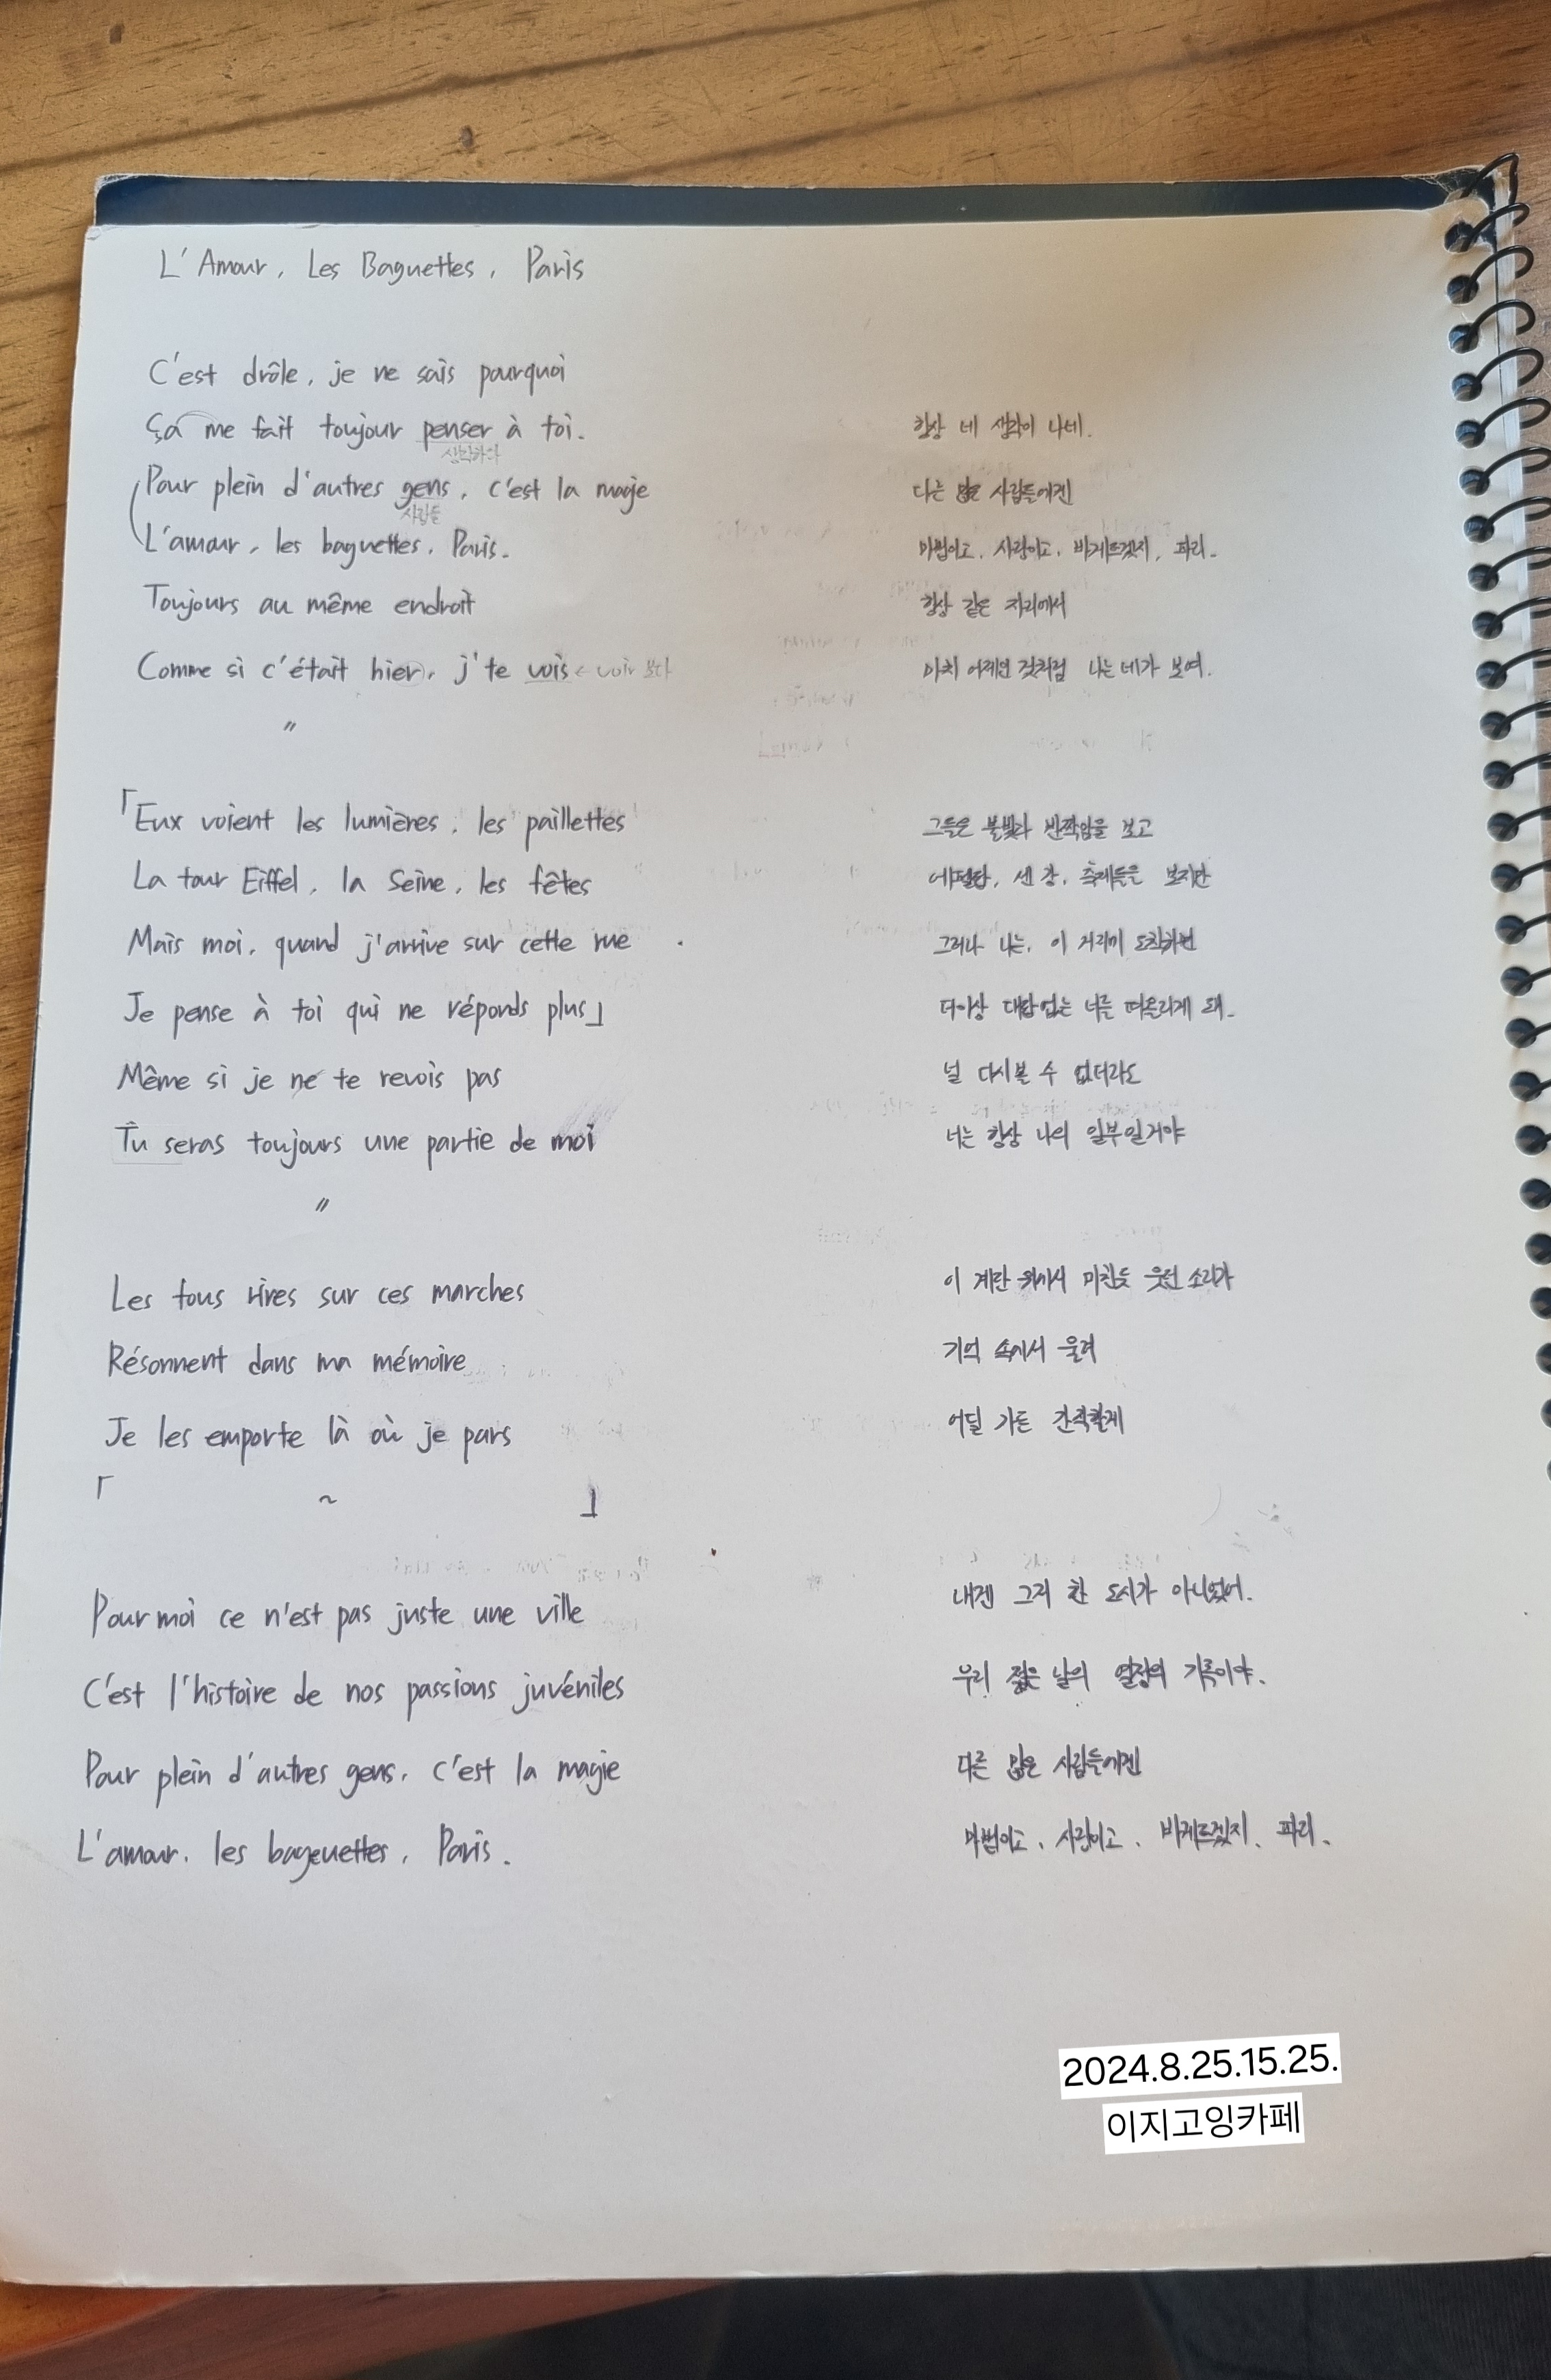 L'Amour, Les Baguettes, Paris
C'est drôle, je ne sais pourquoi
Ça me fait toujour penser à toi. 항상 네 생각이 나네.
생각하다
Pour plein d'autres gens, c'est la magie 다른 많은 사람들에겐
사람들
L'amour, les baguettes, Paris. 마법이고, 사랑이고, 바게트겠지, 파리.
Toujours au même endroit 항상 같은 자리에서
Comme si c'était hier, j'te vois ← voir 보다 마치 어제인 것처럼 나는 네가 보여.
〃
「Eux voient les lumières, les paillettes 그들은 불빛과 반짝임을 보고
La tour Eiffel, la Seine, les fêtes 에펠탑, 센 강, 축제들을 보지만
Mais moi, quand j'arrive sur cette rue 그러나 나는, 이 거리에 도착하면
Je pense à toi qui ne réponds plus」 더이상 대답없는 너를 떠올리게 돼.
Même si je ne te revois pas 널 다시 볼 수 없더라도
Tu seras toujours une partie de moi 너는 항상 나의 일부일거야
〃
Les fous rires sur ces marches 이 계단 위에서 미친듯 웃던 소리가
Résonnent dans ma mémoire 기억 속에서 울려
Je les emporte là où je pars 어딜 가든 간직할게
「 ~ 」
Pour moi ce n'est pas juste une ville 내겐 그저 한 도시가 아니었어.
C'est l'histoire de nos passions juvéniles 우리 젊은 날의 열정의 기록이야.
Pour plein d'autres gens, c'est la magie 다른 많은 사람들에겐
L'amour, les bageuettes, Paris. 마법이고, 사랑이고, 바게트겠지, 파리.
2024.8.25.15.25.
이지고잉카페